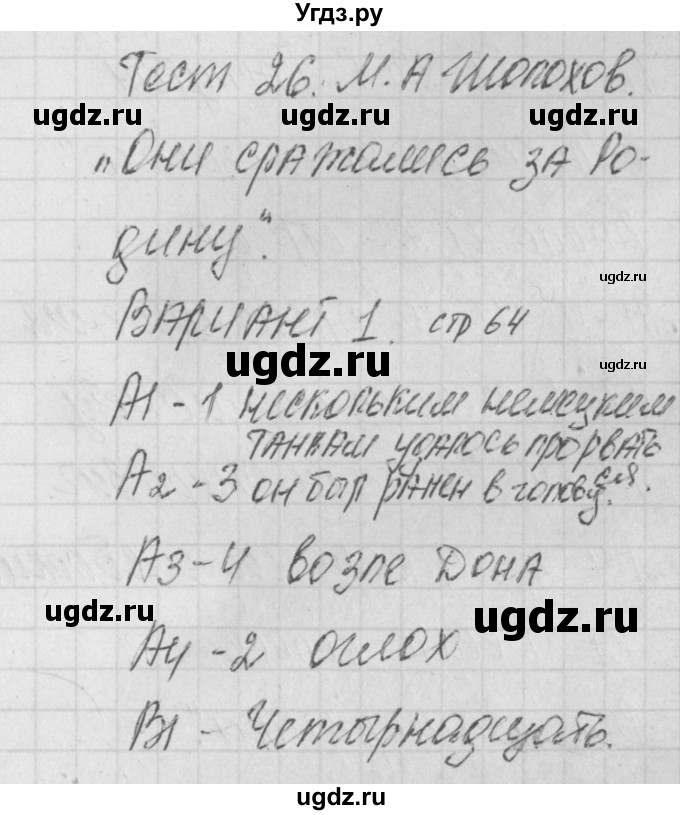 Угдз.ру
Тест 26. М.А Шолохов.
ugdz.ru ugdz.ru
„Они сражались за Ро-
дину".
ugdz.ru
Вариант 1. стр 64
ugdz.ru ugdz.ru
А1 - 1 нескольким немецким
танкам удалось прорваться.
А2 - 3 он был ранен в голову.
А3 - 4 возле Дона
ugdz.ru ugdz.ru
А4 - 2 оглох
В1 - Четырнадцать.
ugdz.ru